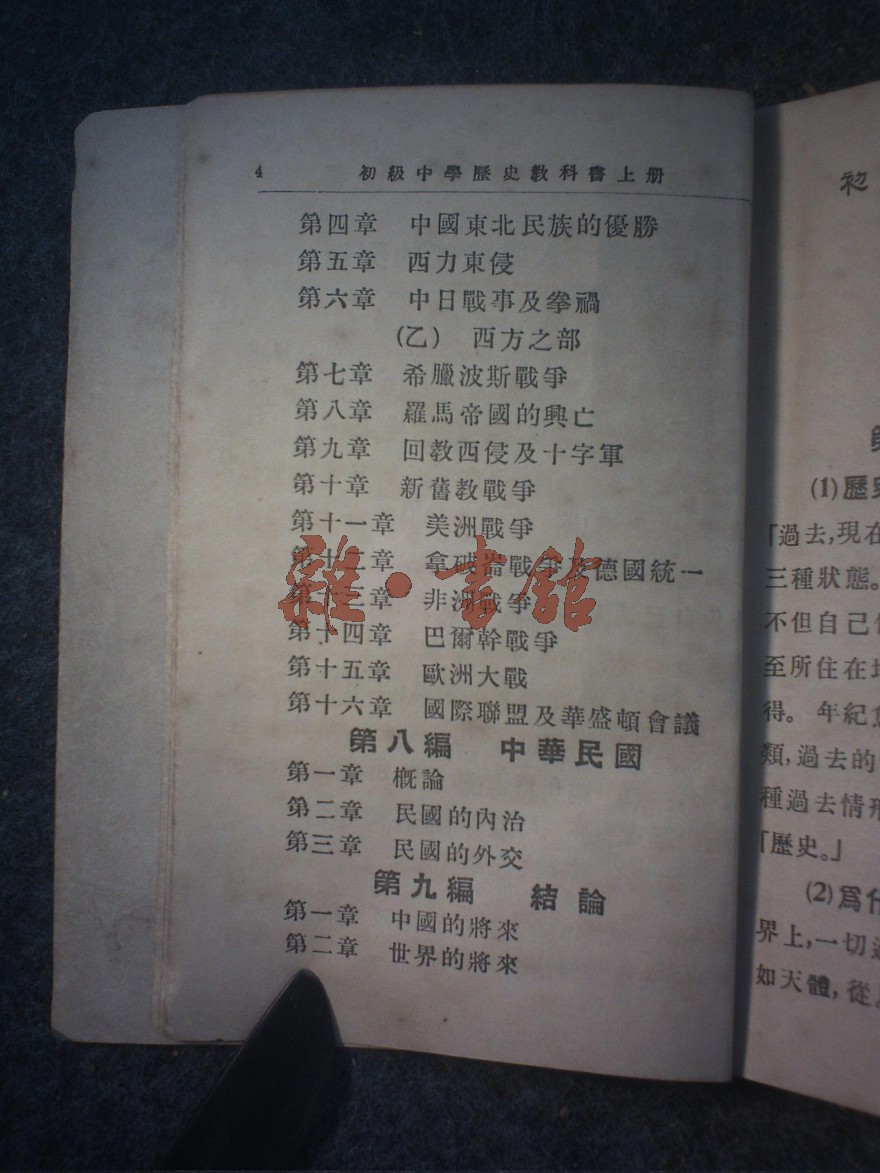 4 初級中學歷史教科書上册
第四章 中國東北民族的優勝
第五章 西力東侵
第六章 中日戰事及拳禍
(乙) 西方之部
第七章 希臘波斯戰爭
第八章 羅馬帝國的興亡
第九章 回教西侵及十字軍
第十章 新舊教戰爭
第十一章 美洲戰爭
第十二章 拿破崙戰爭及德國統一
第十三章 非洲戰爭
第十四章 巴爾幹戰爭
第十五章 歐洲大戰
第十六章 國際聯盟及華盛頓會議
第八編 中華民國
第一章 槪論
第二章 民國的內治
第三章 民國的外交
第九編 結論
第一章 中國的將來
第二章 世界的將來
雜·書館
初
第
(1)歷史
「過去,現在
三種狀態。
不但自己
至所住在地
得。年紀
類,過去的
種過去情形
「歷史。」
(2)爲什
界上,一切
如天體,從